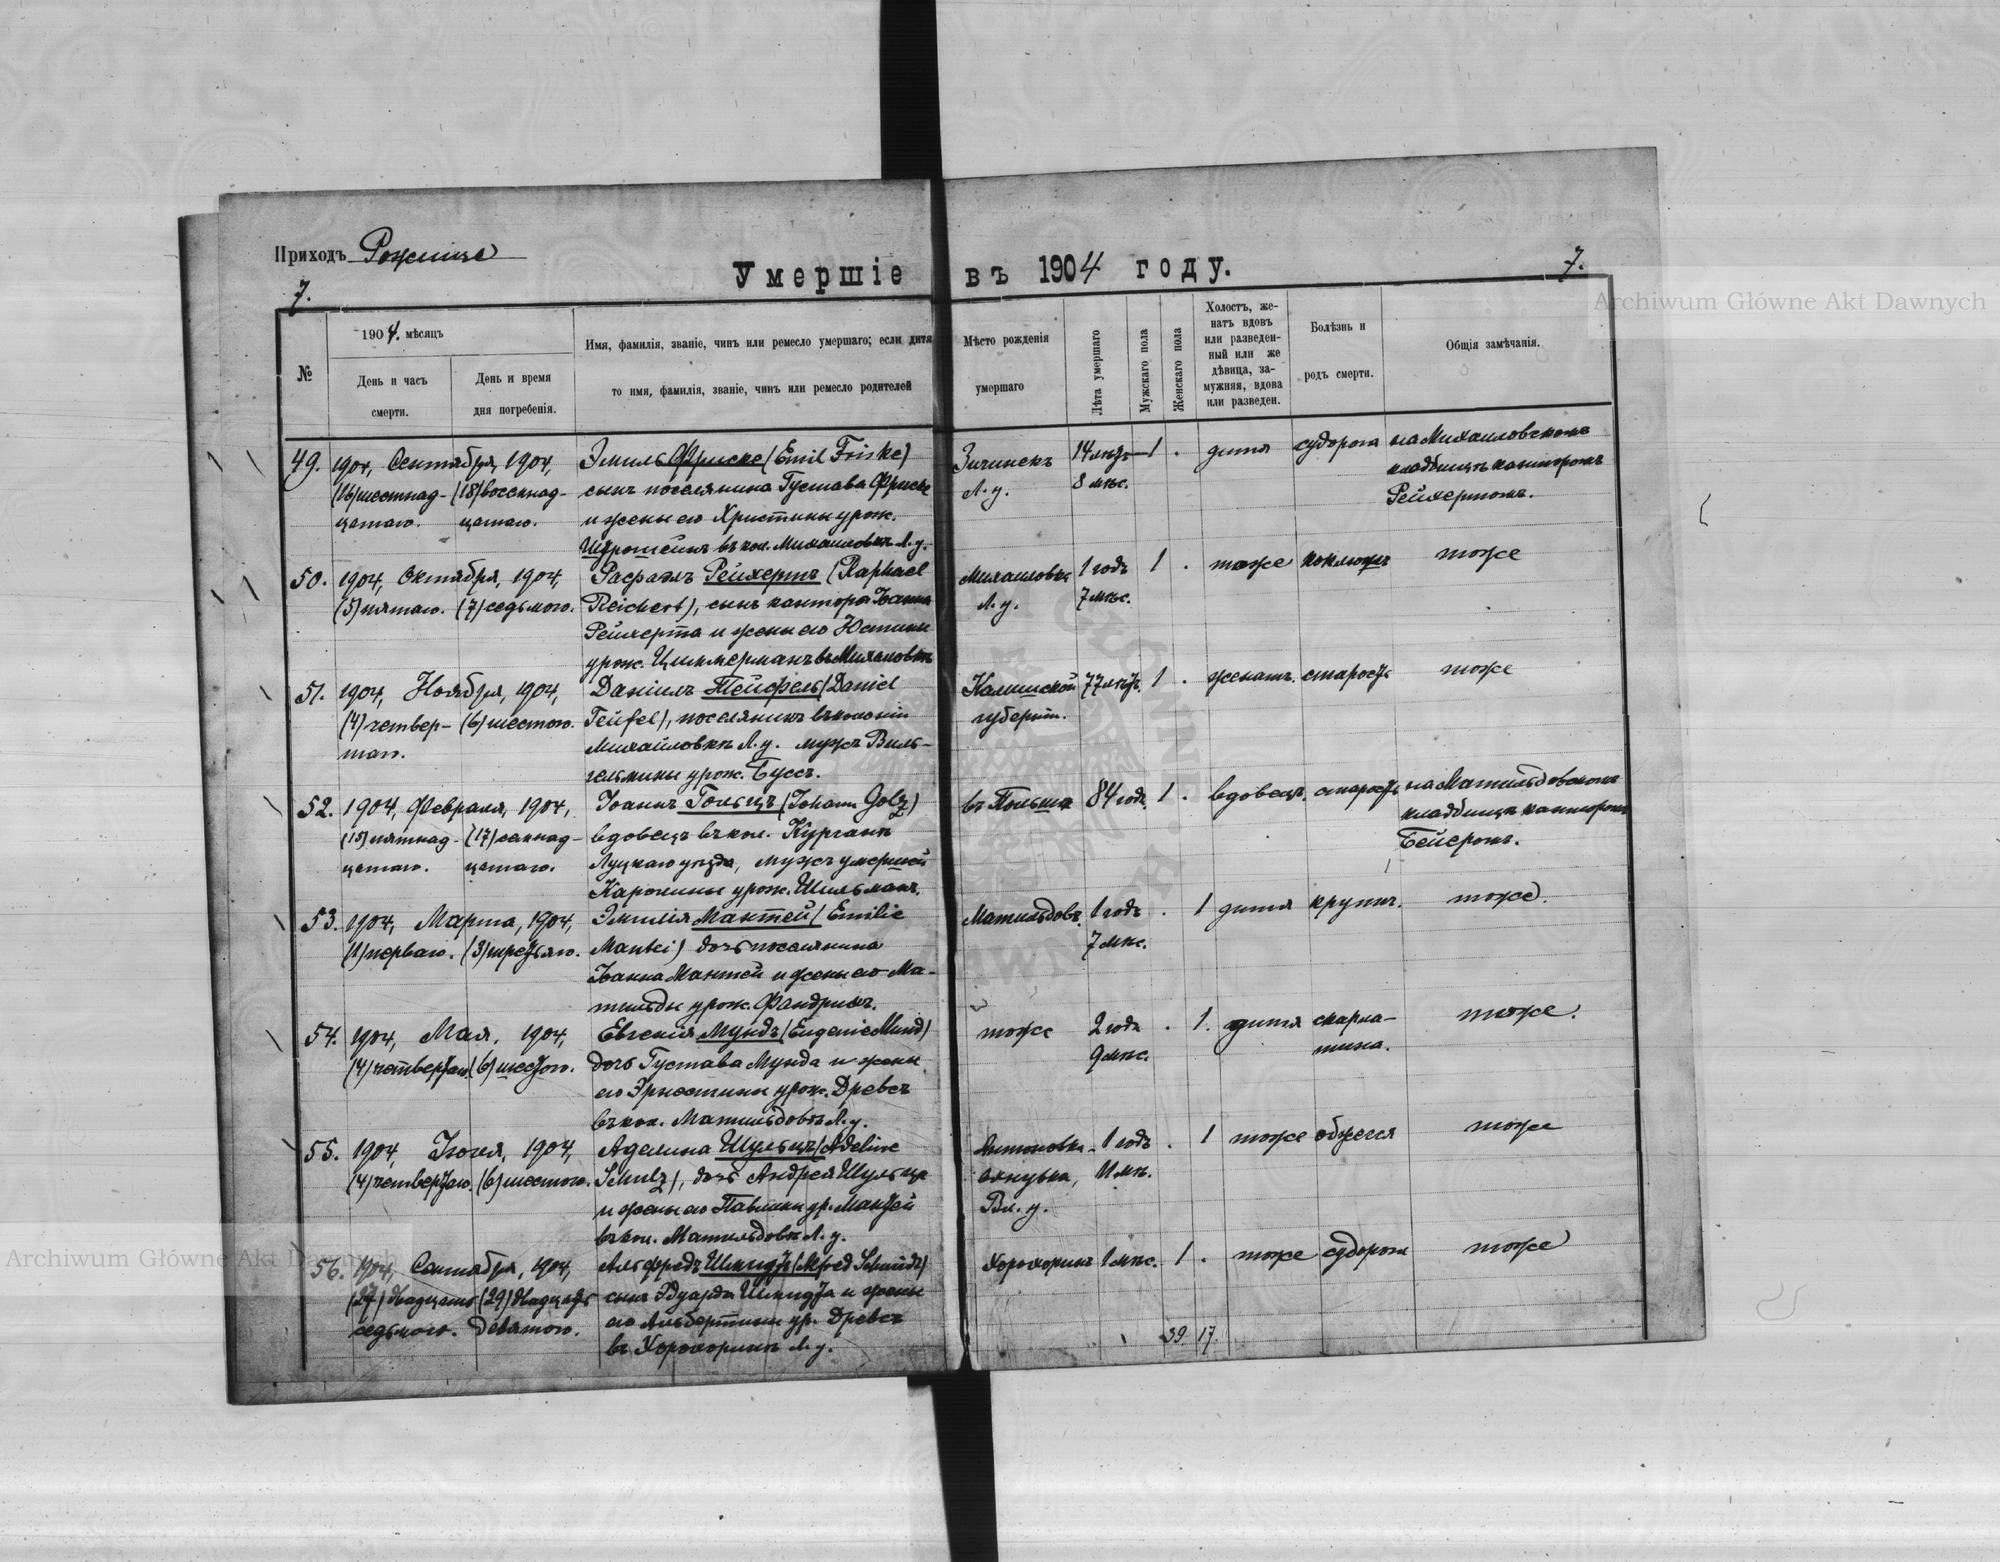 Приходъ Рожище
7.
Умершіе въ 1904 году.
7.
№
1904. мѣсяцъ
День и часъ смерти.
День и время дня погребенія.
Имя, фамилія, званіе, чинъ или ремесло умершаго; если дитя
то имя, фамилія, званіе, чинъ или ремесло родителей
Мѣсто рожденія
умершаго
Лѣта умершаго
Мужскаго пола
Женскаго пола
Холостъ, же-
натъ вдовъ
или разведен-
ный или же
дѣвица, за-
мужняя, вдова
или разведен.
Болѣзнь и
родъ смерти.
Общія замѣчанія.
49. 1904, Сентября, 1904, Эмиль Фриске (Emil Friske) 14 лѣтъ 1 . дитя судорога на Михаиловскомъ
(16) шестнад- (18) восемнад- сынъ поселянина Густава Фриске Л. у. 8 мѣс. кладбищѣ канторомъ
цатаго. цатаго. и жены его Христины урож. Рейхертомъ.
въ кол. Михаиловкѣ Л. у.
50. 1904, Октября, 1904, Рафаэль Рейхертъ (Raphael Михаиловка 1 годъ 1 . тоже коклюшъ тоже
(5) пятаго. (7) седьмого. Reichert), сынъ кантора Іоанна Л. у. 7 мѣс.
Рейхерта и жены его Юстины
урож. Циммерманъ въ Михаловкѣ
51. 1904, Ноября, 1904, Даніилъ Тейфель (Daniel Калишской 77 лѣтъ. 1 . женатъ. старость тоже
(4) четвер- (6) шестого. Teufel), поселянинъ въ колоніи губерніи.
таго. Михайловкѣ Л. у. мужъ Виль-
гельмины урож. Буссъ.
52. 1904, Февраля, 1904, Іоаннъ Гольцъ (Johann Golz) въ Польшѣ 84 года. 1 . вдовецъ. старость на Матильдовскомъ
(15) пятнад- (17) семнад- вдовецъ въ кол. Курганъ кладбищѣ канторомъ
цатаго. цатаго. Луцкаго уѣзда, мужъ умершей Бейеромъ.
Каролины урож. Шильманъ.
53. 1904, Марта, 1904, Эмилія Мантей (Emilie Матильдовъ. 1 годъ . 1 дитя крупъ. тоже.
(1) перваго. (3) третьяго. Mantei) дочь поселянина 7 мѣс.
Іоанна Мантей и жены его Ма-
тильды урож. Фандрихъ.
54. 1904, Мая, 1904, Евгенія Мундъ (Eugenie Mund) тоже 2 года . 1. дитя скарла- тоже.
(4) четвертаго. (6) шестого. дочь Густава Мунда и жены 9 мѣс. тина.
его Эрнестины урож. Древсъ
въ кол. Матильдовъ Л. у.
55. 1904, Іюля, 1904, Аделина Шульцъ (Adeline 1 годъ . 1 тоже обжегся тоже
(4) четвертаго. (6) шестого. Schulz), дочь Андрея Шульца 11 мѣ.
и жены его Павлины ур. Мантей Вл. у.
въ кол. Матильдовъ Л. у.
56. 1904, Сентября, 1904, Альфредъ Шмидтъ (Alfred Schmidt) Хорохоринъ 1 мѣс. 1 . тоже судорога тоже
(27) двадцать (29) двадцать сынъ Эдуарда Шмидта и жены
седьмого. девятого. его Альбертины ур. Древсъ
въ Хорохоринъ Л. у.
39. 17.
Archiwum Główne Akt Dawnych
Archiwum Główne Akt Dawnych